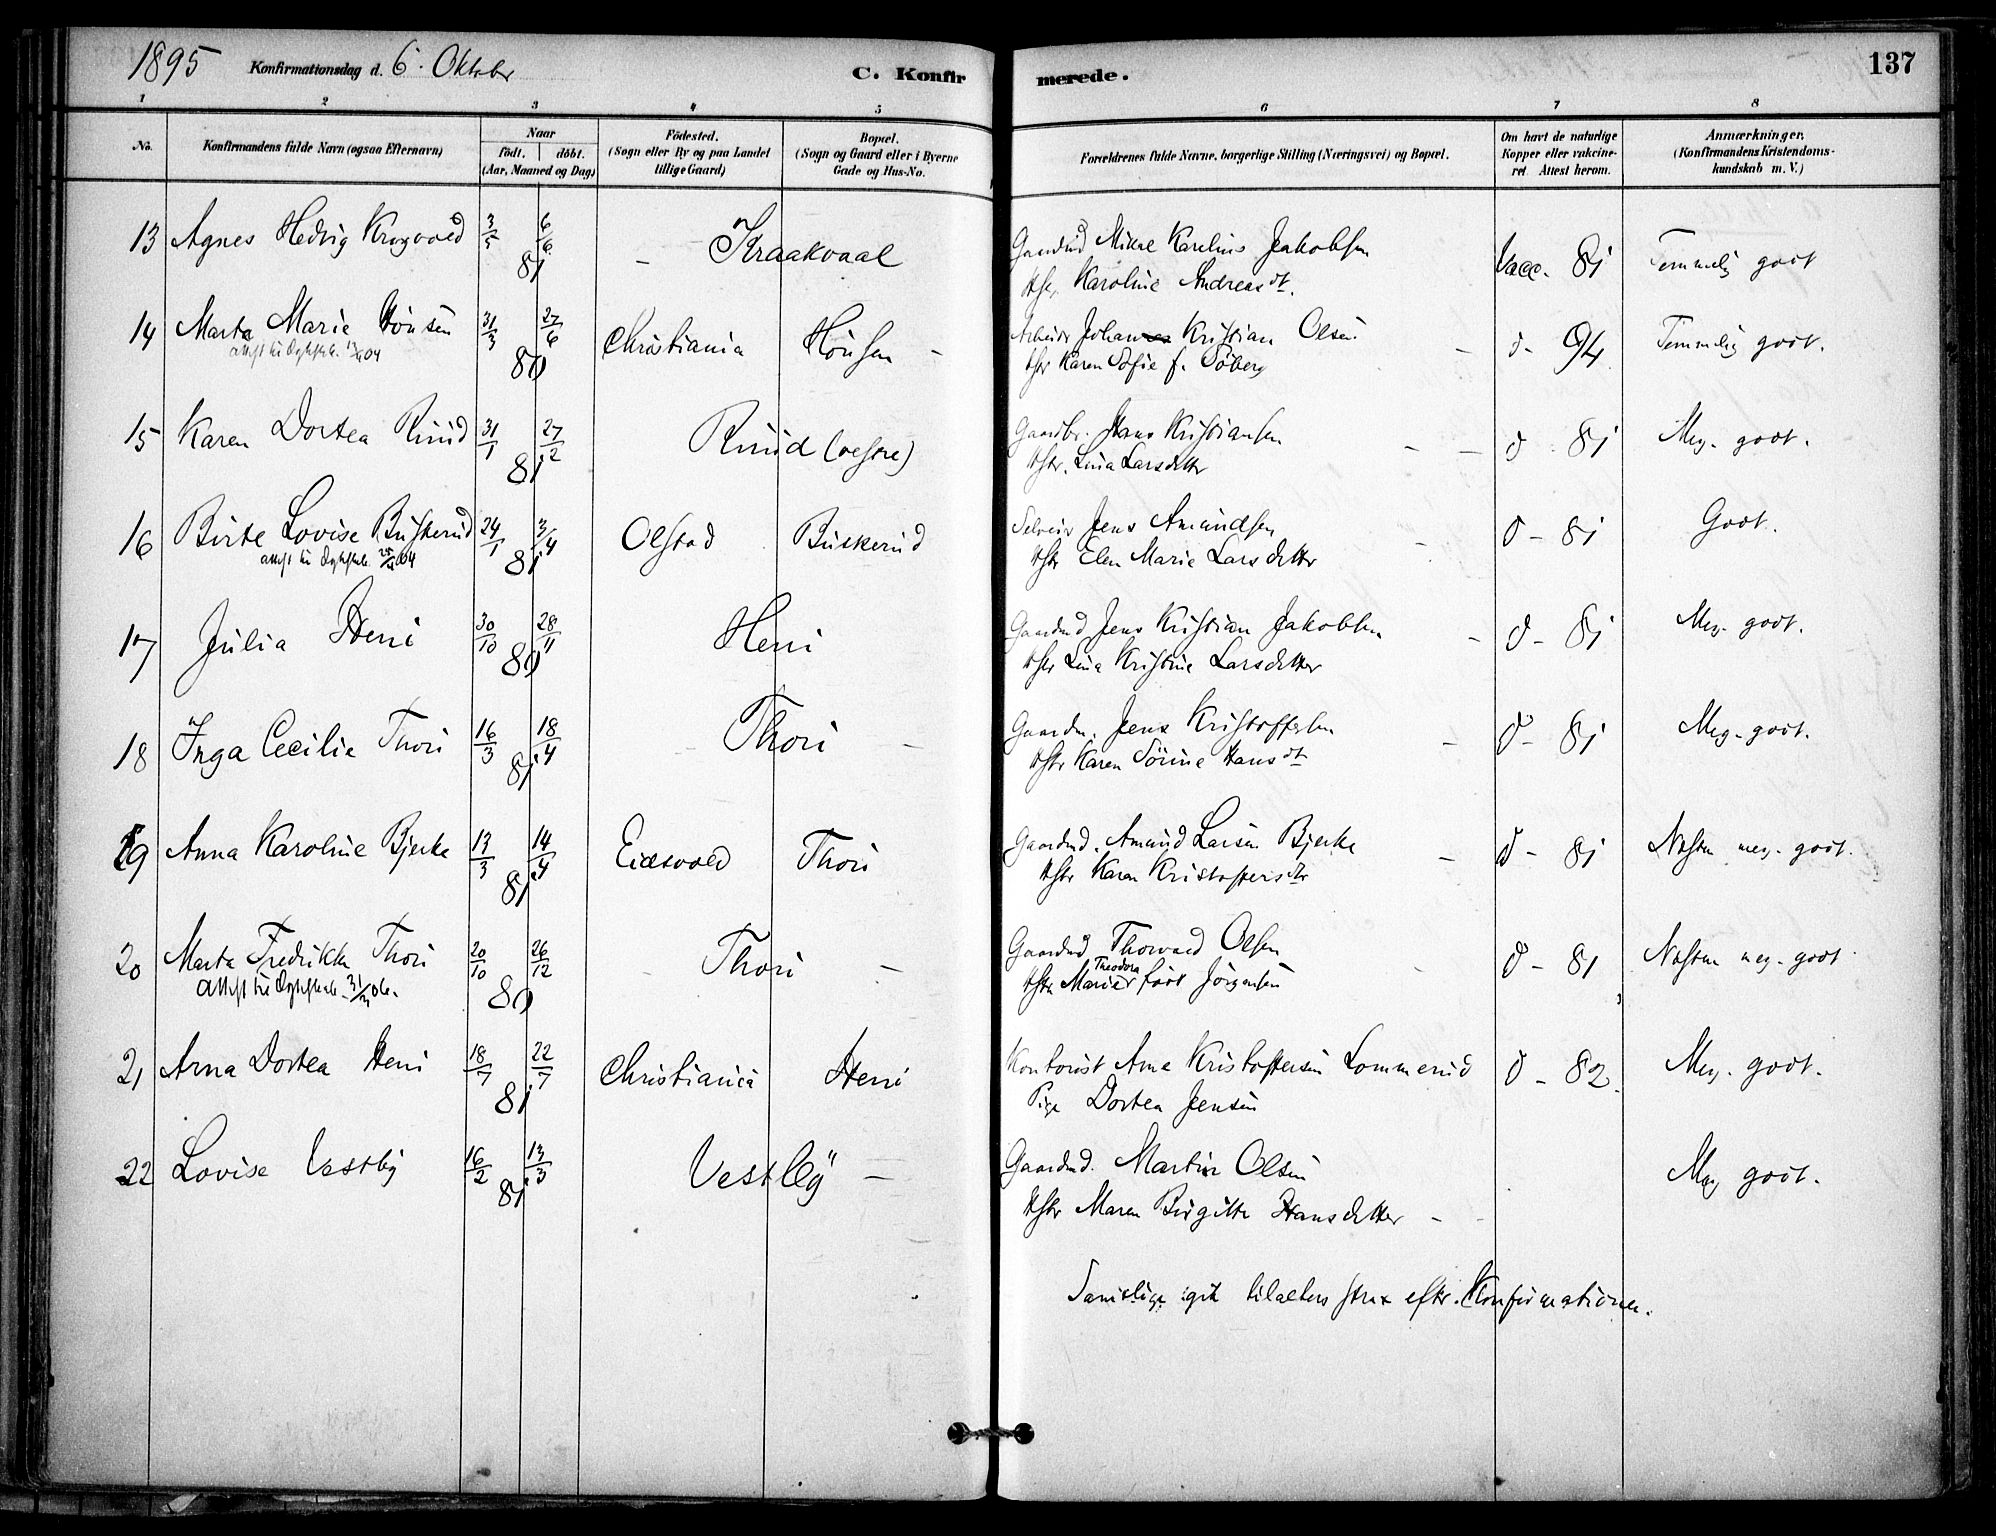 1895 Konfirmationsdag d. 6. Oktober C. Konfirmerede. 137
1 2 3 4 5 6 7 8
No. Konfirmandens fulde Navn (ogsaa Efternavn) Naar födt. döbt. (Aar, Maaned og Dag) Födested. (Sogn eller By og paa Landet tillige Gaard) Bopæl. (Sogn og Gaard eller i Byerne Gade og Hus-No. Forældrenes fulde Navne, borgerlige Stilling (Næringsvei) og Bopæl. Om havt de naturlige Kopper eller vakcineret Attest herom. Anmærkninger. (Konfirmandens Kristendomskundskab m. V.)
13 Agnes Hedvig 3/5 6/6 81 – Kraakvaal Gaardmd Karelius Jakobsen Vacc. 81 Temmelig godt
Hstr. Karoline Andreasdt.
14 Marta Marie Hönsen 31/3 27/6 80 Christiania Hönsen – Arbeider Johan Kristian Olsen – d – 94 Temmelig godt.
Hstr Karen Sofie f. Söberg
15 Karen Dortea Ruud 31/1 27/2 81 Ruud (vestre) Gaardbr. Hans Kristiansen – – d – 81 Meg. godt.
Hstr. Lina Larsdtter
16 Birte Lovise Buskerud 24/1 3/4 81 Olstad Buskerud Selveier Jens Amundsen – d – 81 Godt.
Hstr Elen Marie Larsdtter
17 Julia Heni 30/10 28/11 80 Heni Gaardmd Jens Kristian Jakobsen – d – 81 Meg. godt.
Hstr Lina Kristine Larsdtter
18 Inga Cecilie Thori 16/3 18/4 81 Thori – Gaardm. Jens Kristoffersen – d – 81 Meg. godt.
Hstr Karen Sörine Hansdt
19 Anna Karoline Bjerke 13/3 14/4 81 Eidsvold Thori Gaardmd. Amund Larsen Bjerke – d – 81 Næsten meg. godt.
Hstr Karen Kristoffersdtr
20 Marta Fredrikke Thori 20/10 26/12 80 Thori – Gaardmd Thorvald Olsen d – 81 Næsten meg. godt
Hstr Marie Theodora födt Jörgensen
21 Arna Dortea Heni 18/7 22/7 81 Christiania Heni Kontorist Arne Kristoffersen Lommerud d – 82. Meg. godt.
Pige Dortea Jensen
22 Lovise Vestby 16/2 13/3 81 Vestby – Gaardmd. Martin Olsen Meg godt.
Hstr Maren Birgitte Hansdtter –
Samtlige gik tilalters strax efter Konfirmationen.